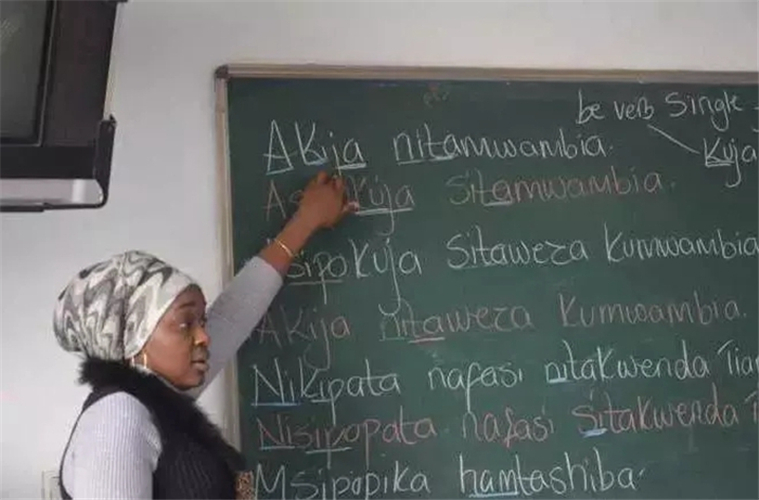 be verb Single
Kuja
Akija nitamwambia.
sitamwambia.
sitaweza kumwambia
Akija nitaweza kumwambia.
Nikipata nafasi nitakwenda Tian
Nisipopata nafasi sitakwenda
Msipopika hamtashiba.